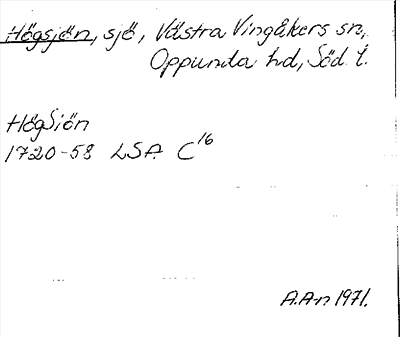 Högsjön, sjö, Västra Vingåkers sn,
Oppunda hd, Söd. l.
HögSiön
1720-58 LSA C16
A.A-n 1971.